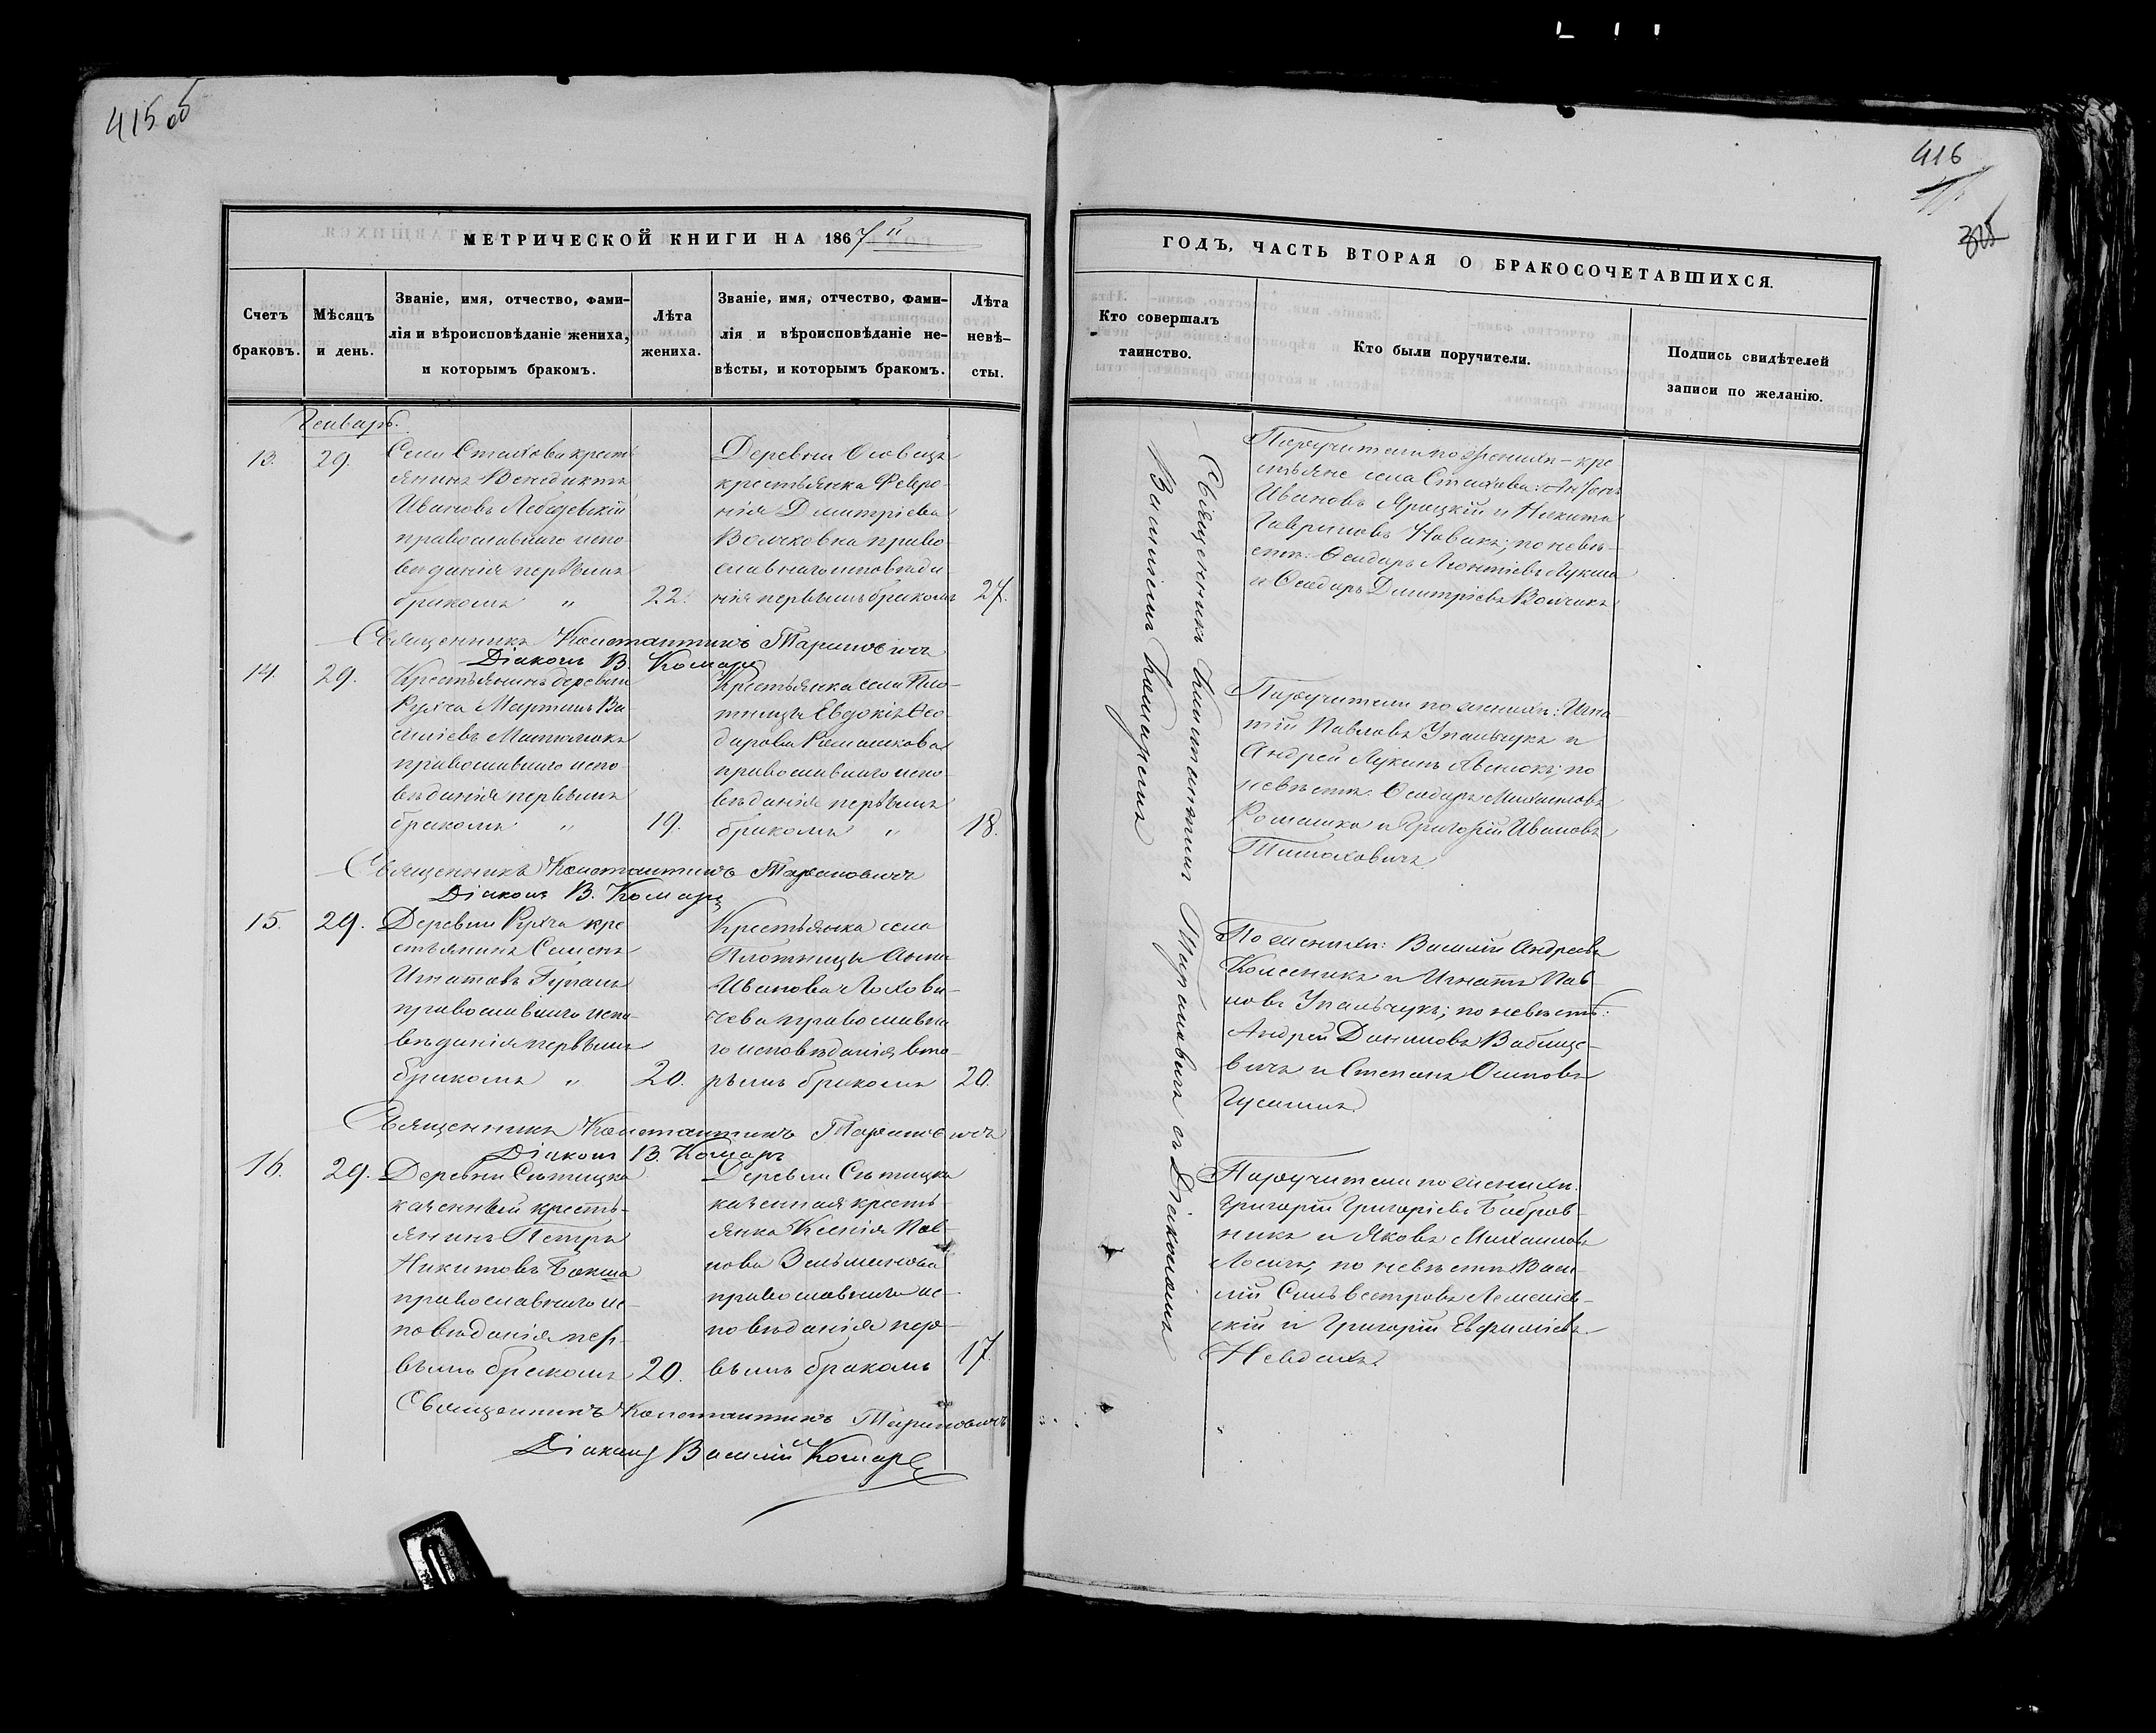 415 об
МЕТРИЧЕСКОЙ КНИГИ НА 1867 й
Счетъ браковъ.
Мѣсяцъ и день.
Званіе, имя, отчество, фами-
лія и вѣроисповѣданіе жениха,
и которымъ бракомъ.
Лѣта
жениха.
Званіе, имя, отчество, фами-
лія и вѣроисповѣданіе не-
вѣсты, и которымъ бракомъ.
Лѣта
невѣ-
сты.
Генварь.
13.
29.
Села Стахова кресть
янинъ Венедиктъ
Ивановъ Лебедевскій
православнаго испо-
вѣданія первымъ
бракомъ "
22.
Деревни Осовецъ
крестьянка Февро-
нія Димитріева
Волчковна право-
славнаго исповѣда-
нія первымъ бракомъ
27.
Священникъ Константинъ Тарановичъ
Діаконъ В. Комаръ
14.
29.
Крестьянинъ деревни
Рухча Мартинъ Ва
силіевъ
православнаго испо-
вѣданія первымъ
бракомъ "
19.
Крестьянка села Пло-
тницы Евдокія Ѳео-
дорова Ромашкова
православнаго испо-
вѣданія первымъ
бракомъ "
18.
Священникъ Константинъ Тарановичъ
Діаконъ В. Комаръ
15.
29.
Деревни Рухча кре
стьянинъ Семенъ
Игнатовъ
православнаго испо-
вѣданія первымъ
бракомъ "
20.
Крестьянка села
Плотницы Анна
Иванова Лохови-
чева православна
го исповѣданія вто-
рымъ бракомъ
20.
Священникъ Константинъ Тарановичъ
Діаконъ В. Комаръ
16.
29.
Деревни Сътицка
казенный кресть-
янинъ Петръ
Никитовъ Бокша
православнаго ис-
повѣданія пер-
вымъ бракомъ
20.
Деревни Сътицка
казенная кресть-
янка Ксенія Пав-
лова Зельманова
православнаго ис-
повѣданія пер-
вымъ бракомъ
17.
Священникъ Константинъ Тарановичъ
Діаконъ Василій Комаръ
416
ГОДЪ, ЧАСТЬ ВТОРАЯ О БРАКОСОЧЕТАВШИХСЯ.
Кто совершалъ
таинство.
Кто были поручители.
Подпись свидѣтелей
записи по желанію.
Священникъ Константинъ Тарановичъ съ Діакономъ
Василіемъ Комаремъ
Поручители по женихѣ - кре
стьяне села Стахова: Антонъ
Ивановъ Яроцкій и Никита
Гавриловъ Новикъ; по невѣ-
стѣ: Ѳеодоръ Леонтіевъ Лукша
и Ѳеодоръ Димитріевъ Волчикъ
Поручители по женихѣ: Игна-
тій Павловъ Упальчукъ и
Андрей Лукинъ Авсіюкъ; по
невѣстѣ: Ѳеодоръ Михаиловъ
Ромашка и Григорій Ивановъ
Тимоховичъ.
По женихѣ: Василій Андреевъ
Колесникъ и Игнатъ Пав-
ловъ Упальчукъ; по невѣстѣ:
Андрей Даниловъ Вабище-
вичъ и Степанъ Осиповъ
Поручители по женихѣ:
Григорій Григоріевъ Бобров-
никъ и Яковъ Михаиловъ
Лосичъ, по невѣстѣ Васи-
лій Сильвестровъ Лемешев-
скій и Григорій Евфиміевъ